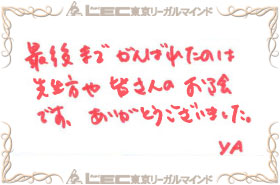 LEC東京リーガルマインド
最後まで がんばれたのは
先生方や 皆さんの お陰
です。ありがとうございました。
YA
LEC東京リーガルマインド